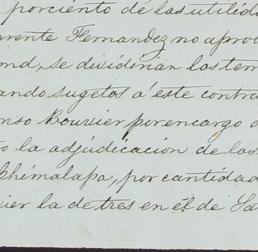 porciento de las utilida
arente Fernandez no aprov
nd, se dividirian los terr
ando sugetos á este contra
nso Bouvier por encargo d
o la adjudicacion de los
Chimalapa, por cantidad
ier la de tres en el de Sa